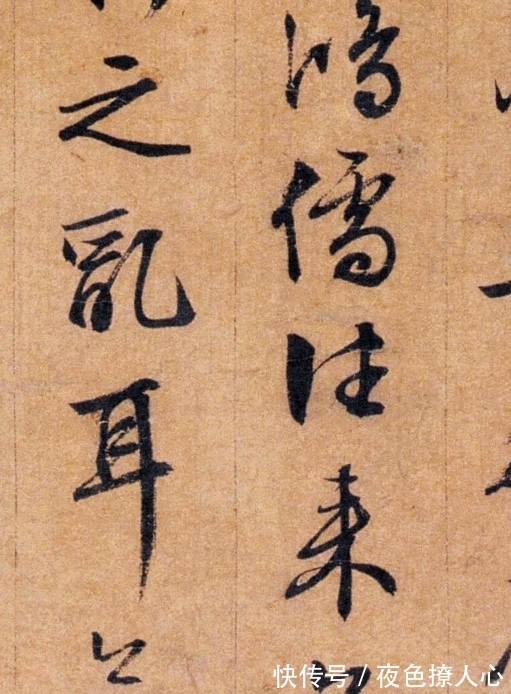 鴻儒往来
之亂耳
快传号 / 夜色撩人心